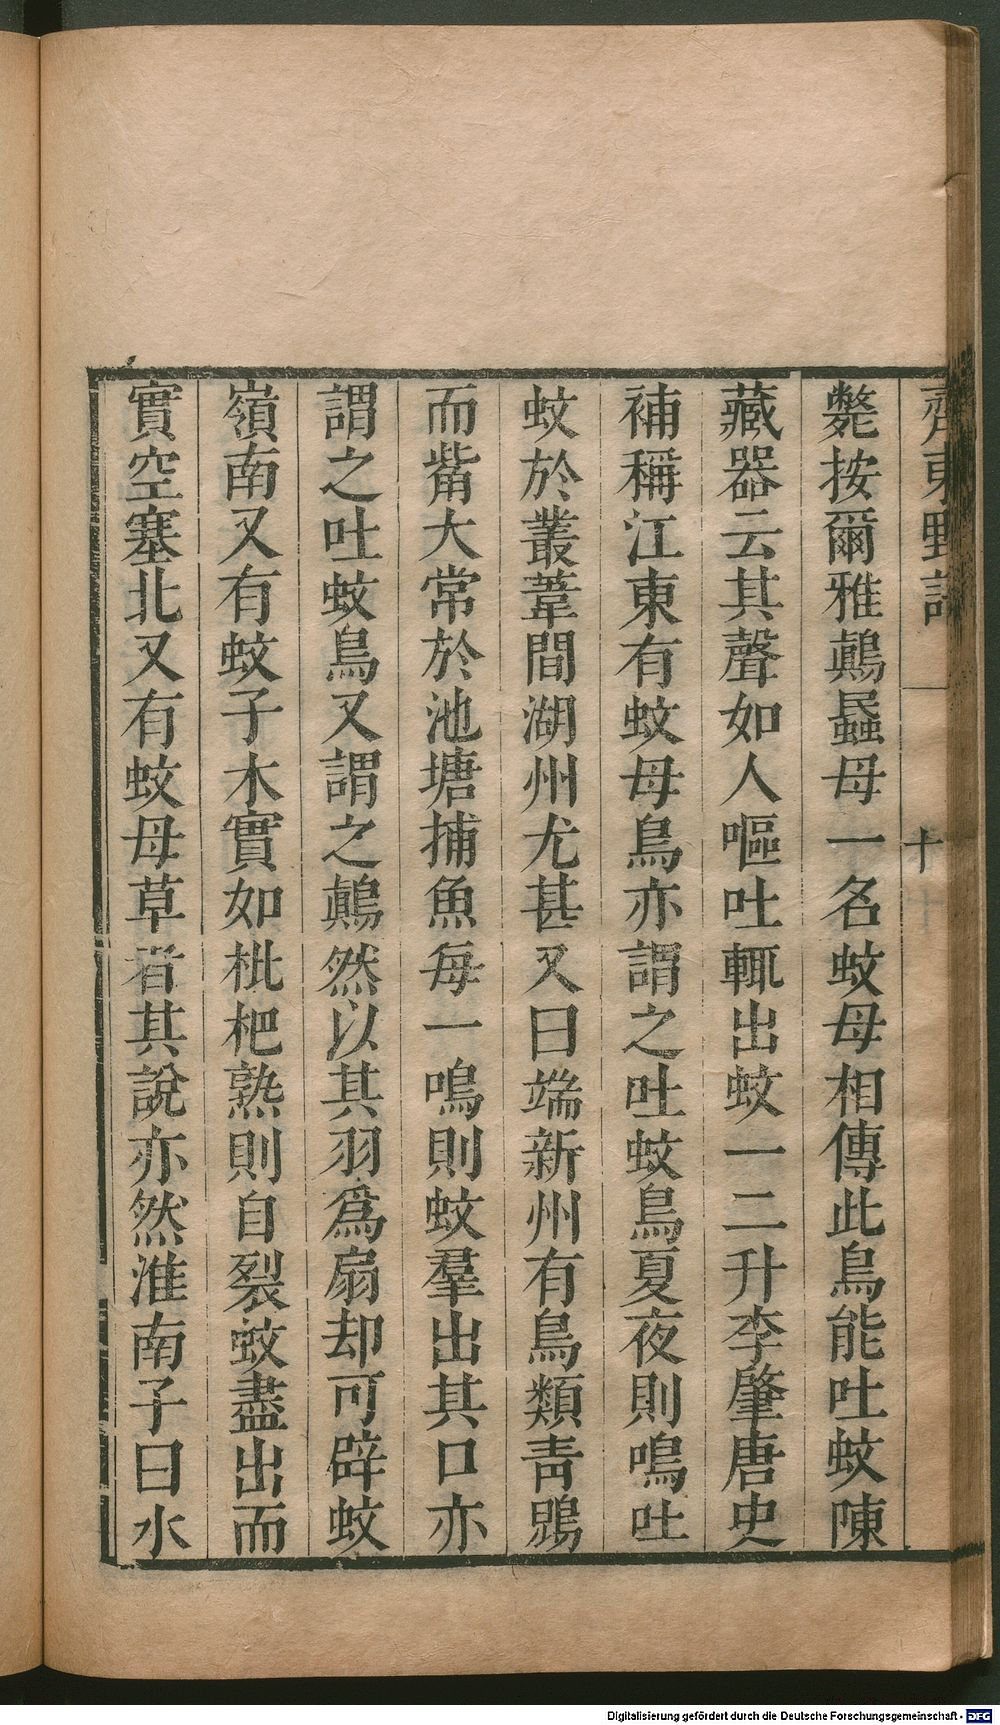 齊東野語
十
斃按爾雅鷏蟁母一名蚊母相傳此鳥能吐蚊陳
藏器云其聲如人嘔吐輒出蚊一二升李肇唐史
補稱江東有蚊母鳥亦謂之吐蚊鳥夏夜則鳴吐
蚊於叢葦間湖州尤甚又曰端新州有鳥類青鶂
而觜大常於池塘捕魚每一鳴則蚊羣出其口亦
謂之吐蚊鳥又謂之鷏然以其羽爲扇却可辟蚊
嶺南又有蚊子木實如枇杷熟則自裂蚊盡出而
實空塞北又有蚊母草者其說亦然淮南子曰水
Digitalisierung gefördert durch die Deutsche Forschungsgemeinschaft - DFG